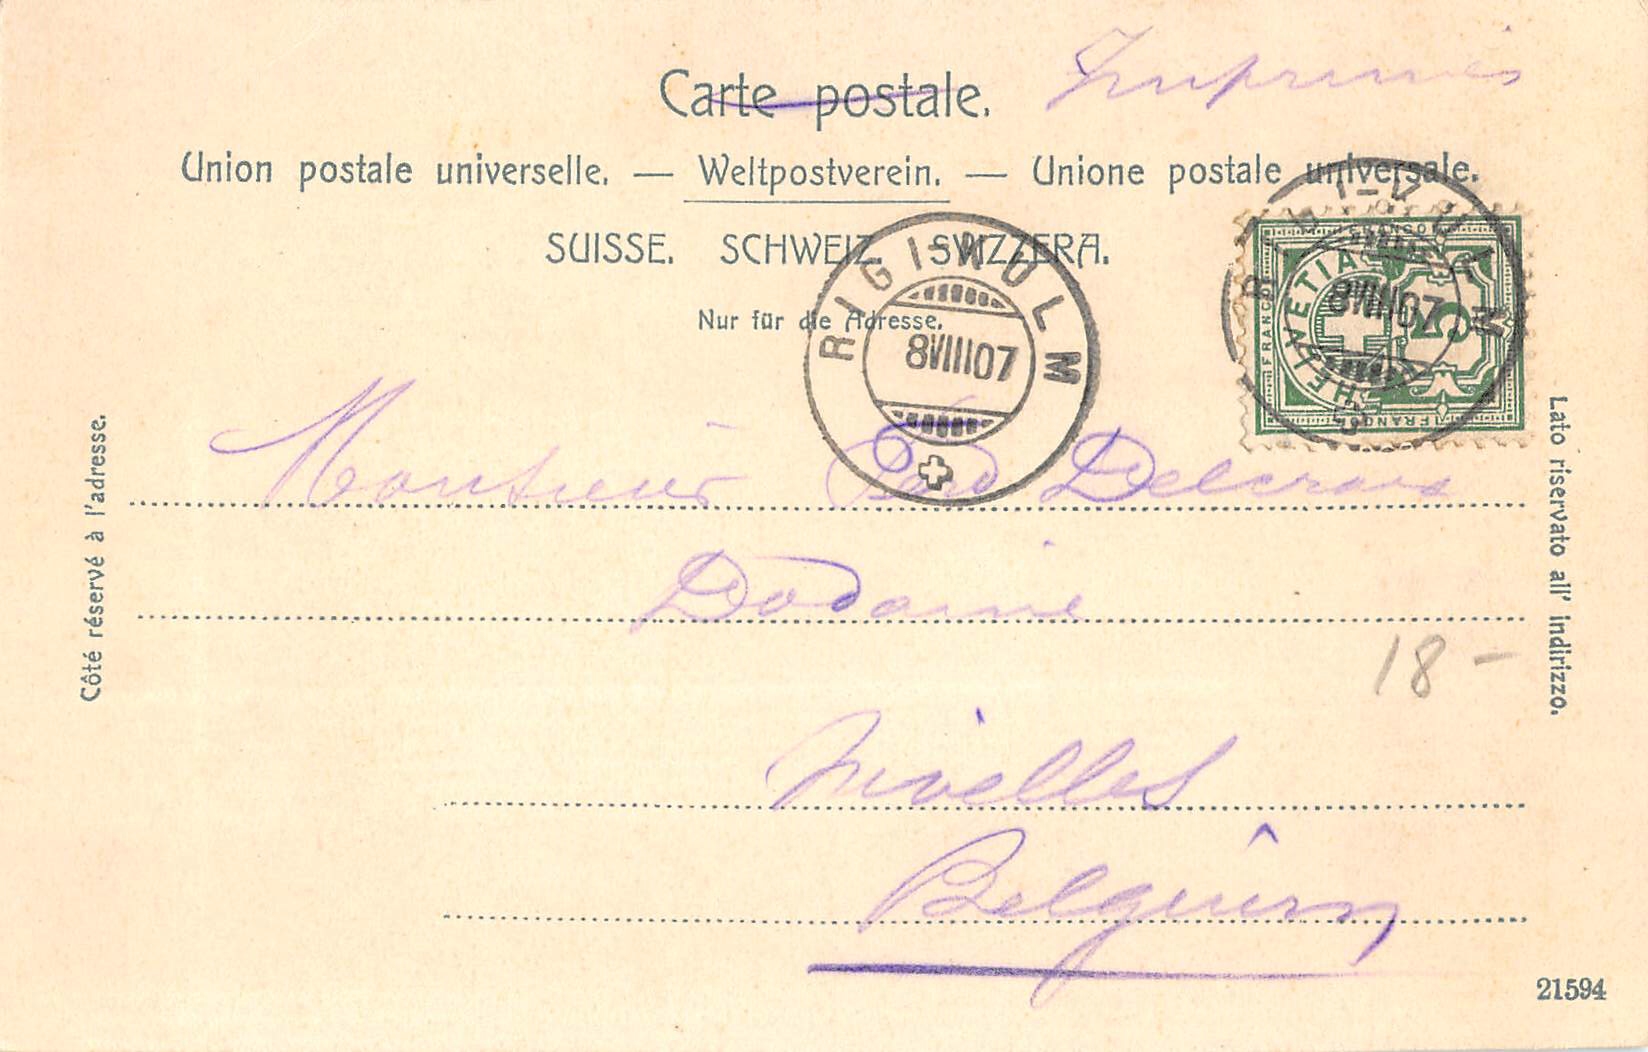 Carte postale.
Imprimés
Union postale universelle. — Weltpostverein. — Unione postale universale.
SUISSE. SCHWEIZ. SVIZZERA.
Nur für die Adresse.
RIGI-KULM
8VIII07
RIGI-KULM
8VIII07
FRANCO
HELVETIA
5
FRANCO
Côté réservé à l'adresse.
Lato riservato all' indirizzo.
Monsieur Delcroix
Dodaine
18 -
Nivelles
Belgium
21594